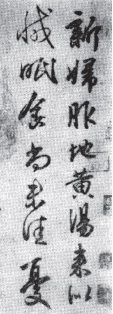 新婦服地黄湯來似
減眠食尚未佳憂